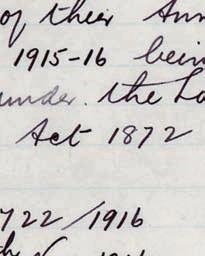 of their Ann
1915-16 bein
under the La
Act 1872
722/1916